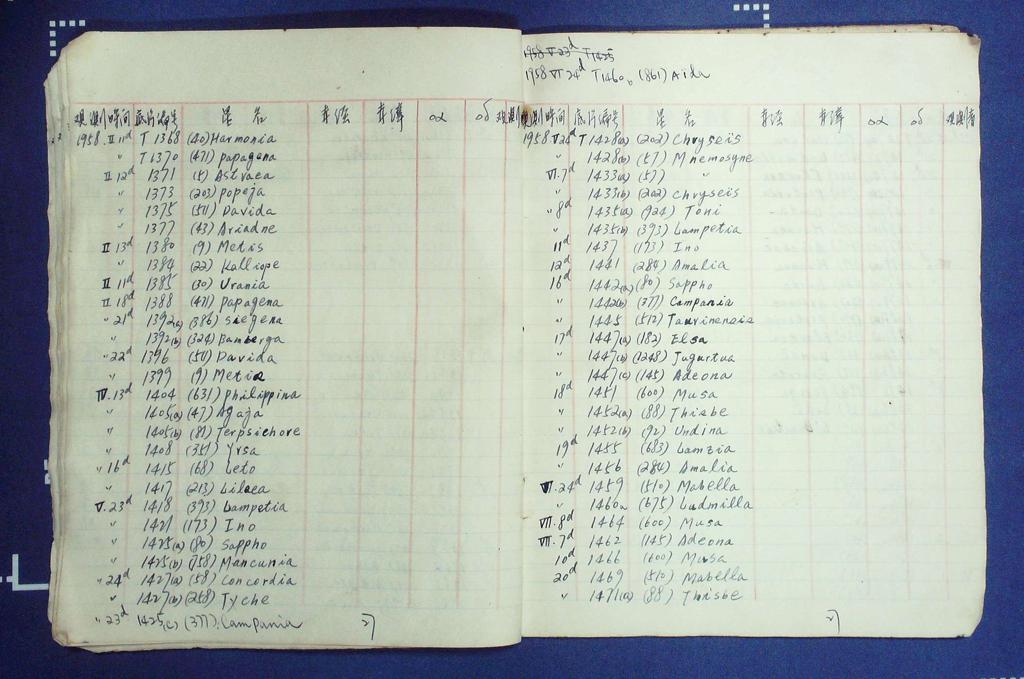 观测时间 底片编号 星名 赤经 赤纬 oα oδ
1958.II 11d T 1368 (40) Harmonia
" T 1370 (471) papagena
II 12d 1371 (5) Astraea
" 1373 (203) popeja
" 1375 (511) Davida
" 1377 (43) Ariadne
II 13d 1380 (9) Metis
" 1384 (22) Kalliope
II 11d 1385 (30) Urania
II 18d 1388 (471) papagena
" 21d 1392(a) (386) Siegena
" 1392(b) (324) Bamberga
" 22d 1396 (511) Davida
" 1399 (9) Metis
IV.13d 1404 (631) philippina
" 1405(a) (47) Agaja
" 1405(b) (81) Terpsichore
" 1408 (351) Yrsa
" 16d 1415 (68) Leto
" 1417 (213) Lilaea
V.23d 1418 (393) Lampetia
" 1421 (173) Ino
" 1425(a) (80) Sappho
" 1425(b) (758) Mancunia
" 24d 1427(a) (58) Concordia
" 1427(b) (258) Tyche
" 23d 1425(c) (377) Campania
27
1958 V 23d T1425
1958 VI 24d T1460b (861) Aida
观测时间 底片编号 星名 赤经 赤纬 oα oδ
1958.V 24d T 1428(a) (202) Chryseis
" 1428(b) (57) Mnemosyne
VI.7d 1433(a) (57) "
" 1433(b) (202) Chryseis
" 8d 1435(a) (924) Toni
" 1435(b) (393) Lampetia
11d 1437 (173) Ino
12d 1441 (284) Amalia
16d 1442(a) (80) Sappho
" 1442(b) (377) Campania
" 1445 (512) Taurinensis
17d 1447(a) (182) Elsa
" 1447(b) (1248) Jugurtua
" 1447(c) (145) Adeona
18d 1451 (600) Musa
" 1452(a) (88) Thisbe
" 1452(b) (92) Undina
19d 1455 (683) Lanzia
" 1456 (284) Amalia
VI.24d 1459 (510) Mabella
" 1460a (675) Ludmilla
VII.8d 1464 (600) Musa
VII.7d 1462 (145) Adeona
10d 1466 (600) Musa
20d 1469 (510) Mabella
" 1471(a) (88) Thisbe
27